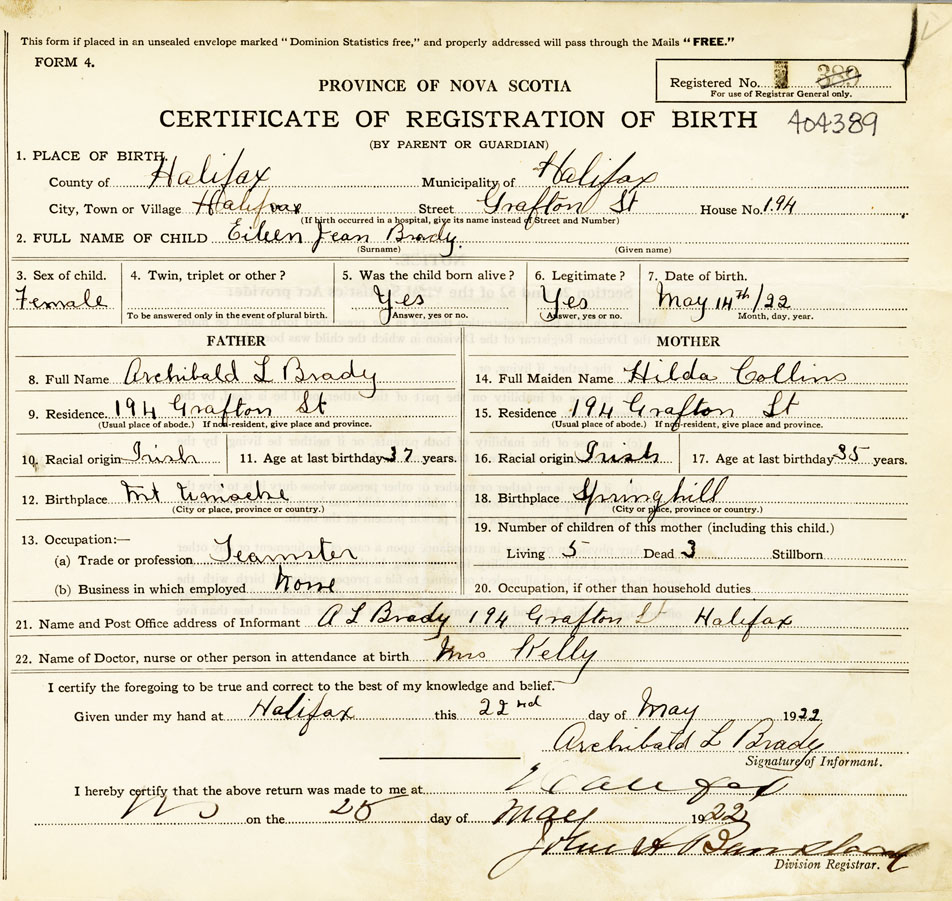 This form if placed in an unsealed envelope marked "Dominion Statistics free," and properly addressed will pass through the Mails "FREE."
FORM 4.
Registered No. 389
For use of Registrar General only.
PROVINCE OF NOVA SCOTIA
CERTIFICATE OF REGISTRATION OF BIRTH 404389
(BY PARENT OR GUARDIAN)
1. PLACE OF BIRTH.
County of Halifax Municipality of Halifax
City, Town or Village Halifax Street Grafton St House No. 194
(If birth occurred in a hospital, give its name instead of Street and Number)
2. FULL NAME OF CHILD Eileen Jean Brady
(Surname) (Given name)
3. Sex of child. 4. Twin, triplet or other? 5. Was the child born alive? 6. Legitimate? 7. Date of birth.
Female Yes Yes May 14th/22
To be answered only in the event of plural birth. Answer, yes or no. Answer, yes or no. Month, day, year.
FATHER MOTHER
8. Full Name Archibald L Brady 14. Full Maiden Name Hilda Collins
9. Residence. 194 Grafton St 15. Residence 194 Grafton St
(Usual place of abode.) If non-resident, give place and province. (Usual place of abode.) If non-resident, give place and province.
10. Racial origin Irish 11. Age at last birthday 37 years. 16. Racial origin Irish 17. Age at last birthday 35 years.
12. Birthplace Mt Uniacke 18. Birthplace Springhill
(City or place, province or country.) (City or place, province or country.)
13. Occupation:— 19. Number of children of this mother (including this child.)
(a) Trade or profession Teamster Living 5 Dead 3 Stillborn
(b) Business in which employed None 20. Occupation, if other than household duties
21. Name and Post Office address of Informant A L Brady 194 Grafton St Halifax
22. Name of Doctor, nurse or other person in attendance at birth Mrs Kelly
I certify the foregoing to be true and correct to the best of my knowledge and belief.
Given under my hand at Halifax this 22nd day of May 1922
Archibald L Brady
Signature of Informant.
I hereby certify that the above return was made to me at Halifax
NS on the 25 day of May 1922
John A
Division Registrar.